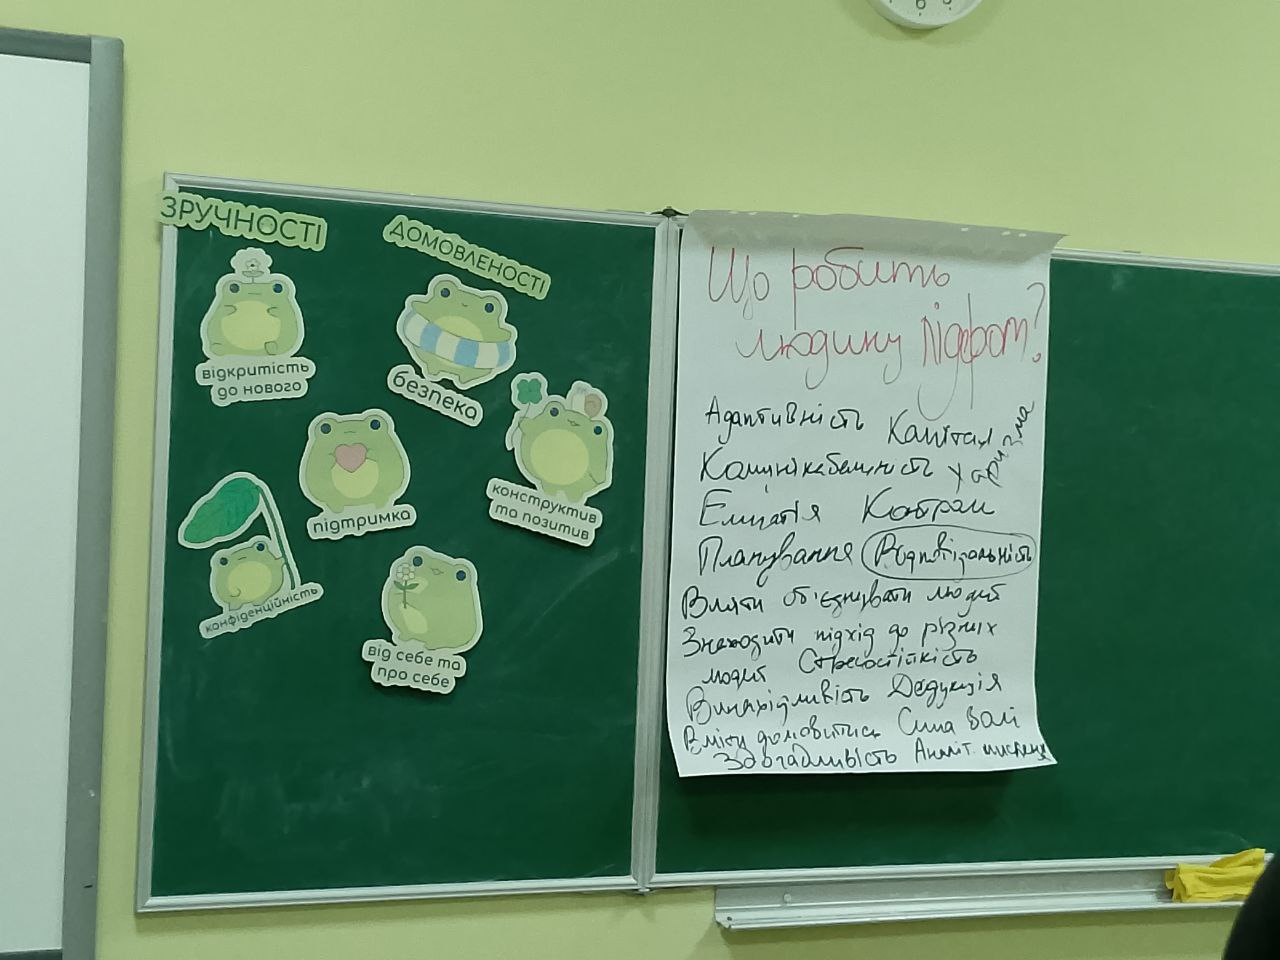 ЗРУЧНОСТІ
ДОМОВЛЕНОСТІ
відкритість
до нового
безпека
підтримка
конструктив
та позитив
конфіденційність
від себе та
про себе
Що робить
людину лідером?
Адаптивність Капітал
Харизма
Комунікабельність
Емпатія Контроль
Планування Відповідальність
Вміти об'єднувати людей
Знаходити підхід до різних
людей Стресостійкість
Винахідливість Дедукція
Вміти домовитись Сила Волі
Здогадливість Аналіт. мислення